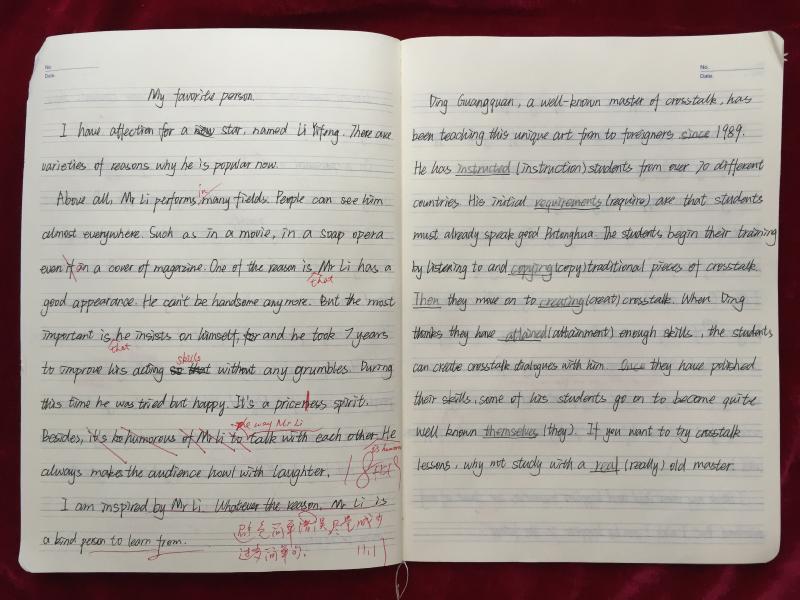 No.
Date.
My favorite person.
I have affection for a new star, named Li Yifeng. There are
varieties of reasons why he is popular now.
in
Above all, Mr Li performs many fields. People can see him
almost everywhere. Such as in a movie, in a soap opera
even on a cover of magazine. One of the reason is Mr Li has a
that
good appearance. He can't be handsome any more. But the most
important is he insists on himself, for and he took 7 years
that
skills
to improve his acting so that without any grumbles. During
this time he was tried but happy. It's a priceless spirit.
way Mr Li
Besides, it's so humorous of Mr Li to talk with each other. He
is humorous
always makes the audience howl with laughter.
18
I am inspired by Mr Li. Whatever the reason, Mr Li is
避免简单错误 尽量减少
a kind person to learn from.
过多简单句.
11.17
No.
Date.
Ding Guangquan, a well-known master of crosstalk, has
been teaching this unique art from to foreigners since 1989.
He has instructed (instruction) students from over 70 different
countries. His initial requirements (require) are that students
must already speak good Putonghua. The students begin their training
by listening to and copying (copy) traditional pieces of crosstalk.
Then they move on to creating (creat) crosstalk. When Ding
thinks they have attained (attainment) enough skills, the students
can create crosstalk dialogues with him. Once they have polished
their skills, some of his students go on to become quite
well known themselves (they). If you want to try crosstalk
lessons, why not study with a real (really) old master.